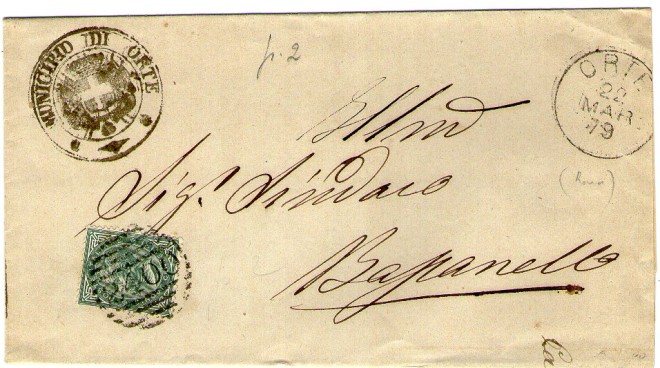 MUNICIPIO DI ORTE
fr. 2
ORTE
22
MAR
79
Illmo
Sigr Sindaco
(Roma)
Bassanello